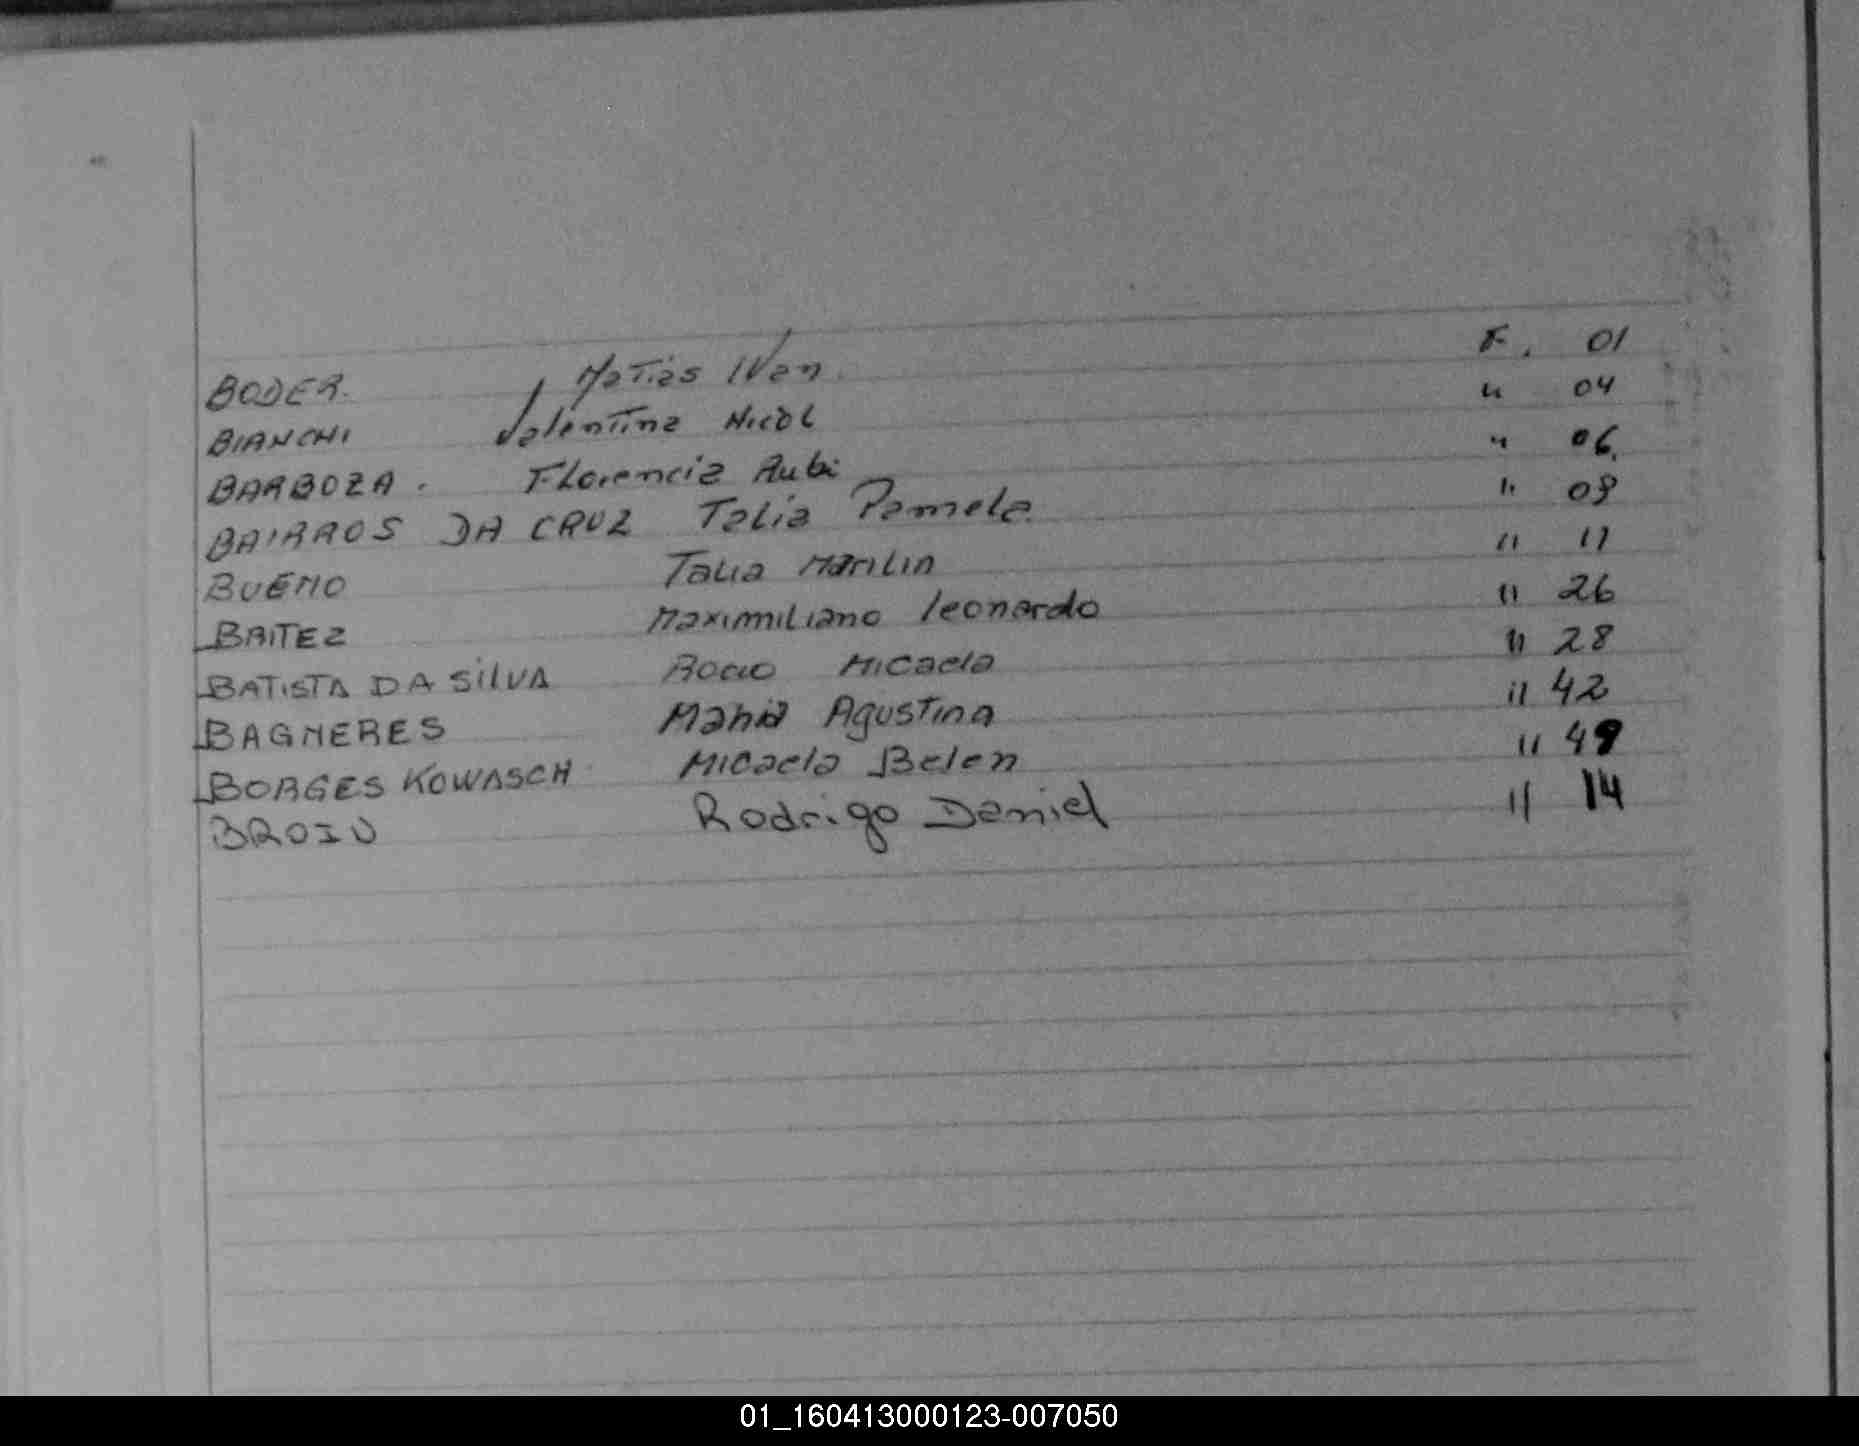 BODER. Matias Ivan. F. 01
BIANCHI Valentina Nicol " 04
BARBOZA. Florencia Rubi " 06.
BAIRROS DA CRUZ Talia Pamela. " 09
BUENO Talia Marilin " 11
BAITEZ Maximiliano leonardo " 26
BATISTA DA SilVA Rocio Micaela " 28
BAGNERES Agustina " 42
BORGES KOWASCH Micaela Belen " 49
Rodrigo Daniel " 14
01_160413000123-007050